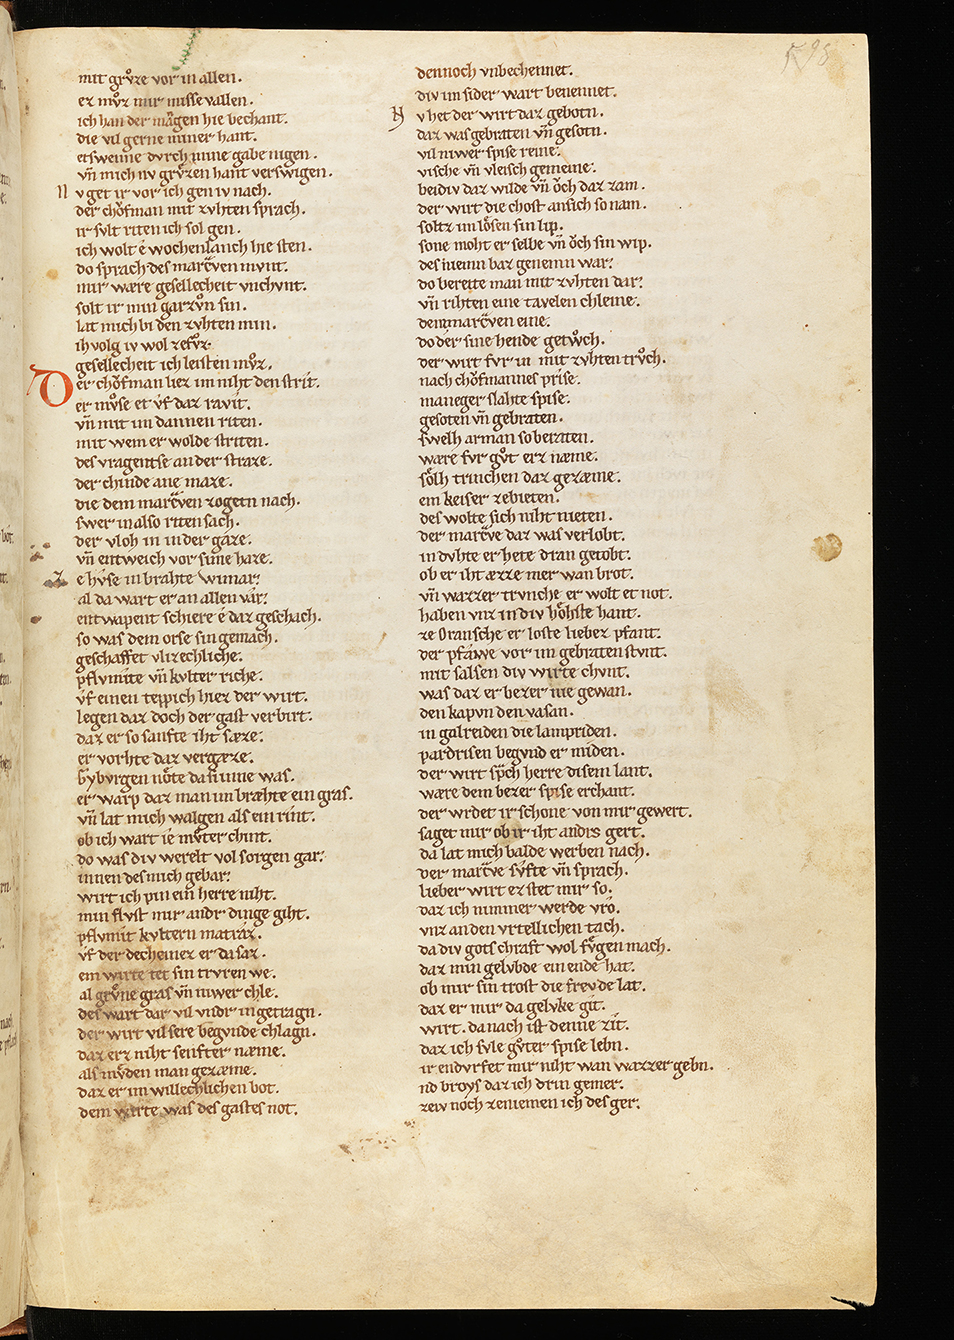 598
mit grv̊ze vor in allen.
ez mv̊z mir missevallen.
ich han der magen hie bechant.
die vil gerne miner hant.
etswenne dvrch mine gabe nigen.
vn̄ mich nv grv̊zen hant verswigen.
Nv get ir vor ich gen iv nach.
der chǒfman mit zvhten sprach.
ir svlt riten ich sol gen.
ich wolt é wochenlanch hie sten.
do sprach des marc̄ven mvnt.
mir wære gesellecheit vnchvnt.
solt ir min garzv̊n sin.
lat mich bi den zvhten min.
ih volg iv wol ze fv̊z.
gesellecheit ich leisten mv̊z.
Der chǒfman liez im niht den strit.
er mv̊se et v́f daz ravit.
vn̄ mit im dannen riten.
mit wem er wolde striten.
des vragentse an der straze.
der chinde ane maze.
die dem marc̄ven zogetn nach.
swer in also riten sach.
der vloh in in der gaze.
vn̄ entweich vor sime haze.
ze hv́se in brahte wimar.
al da wart er an allen vár.
entwapent schiere é daz geschach.
so was dem orse sin gemach.
geschaffet vlizechliche.
pflvmite vn̄ kvlter riche.
v́f einen teppich hiez der wirt.
legen daz doch der gast verbirt.
daz er so sanfte iht sæze.
er vorhte daz vergæze.
Gybvrgen nǒte dar inne was.
er warp daz man im bræhte ein gras.
vn̄ lat mich walgen als ein rint.
ob ich wart ie mv̊ter chint.
do was div werelt vol sorgen gar.
innen des mich gebar.
wirt ich pin ein herre niht.
min flvst mir andr̄ dinge giht.
pflvmit kvltern matráz.
v́f der decheinez er da saz.
em wirte tet sin trvren we.
al grv̊ne gras vn̄ niwer chle.
des wart dar vil vndr̄ in getragn.
der wirt vil sere begvnde chlagn.
daz erz niht senfter næme.
als mv̊den man gezæme.
daz er im willechlichen bot.
dem werte was des gastes not.
dennoch vnbechennet.
div im sider wart benennet.
Nv het der wirt daz gebotn.
daz was gebraten vn̄ gesotn.
vil niwer spise reine.
vische vn̄ vleisch gemeine.
beidiv daz wilde vn̄ ǒch daz zam.
der wirt die chost an sich so nam.
soltz im lǒsen sin lip.
sone moht er selbe vn̄ ǒch sin wip.
des niemn baz genemn war.
do bereite man mit zvhten dar.
vn̄ rihten eine tavelen chleine.
dem marc̄ven eine.
do der sine hende getwǒch.
der wirt fvr in mit zvhten trv̊ch.
nach chǒfmannes prise.
maneger slahte spise.
gesoten vn̄ gebraten.
swelh arman so beraten.
wære fvr gv̊t erz næme.
sǒlh trinchen daz gezæme.
em keiser zebieten.
des wolte sich niht nieten.
der marc̄ve daz was verlobt.
in dvhte er hete dran getobt.
ob er iht æzze mer wan brot.
vn̄ wazzer trvnche er wolt et not.
haben vnz in div hǒhste hant.
ze Oransche er loste liebez pfant.
der pfáwe vor im gebraten stvnt.
mit salsen div wirte chvnt.
was daz er bezer nie gewan.
den kapvn den vasan.
in galreiden die lampriden.
pardrisen begvnd er miden.
der wirt sp̄ch herre disem lant.
wære dem bezer spise erchant.
der wrdet ir schone von mir gewert.
saget mir ob ir iht andrs gert.
da lat mich balde werben nach.
der marc̄ve sv́fte vn̄ sprach.
lieber wirt ez stet mir so.
daz ich nimmer werde vró.
vnz an den vrteillichen tach.
da div gots chraft wol fv̊gen mach.
daz min gelvbde ein ende hat.
ob mir sin trost die frevde lat.
daz er mir da gelvke git.
wirt. da nach ist denne zit.
daz ich svle gv̊ter spise lebn.
ir endvrfet mir niht wan wazzer gebn.
nd broys daz ich drin gemer.
zeiv noch zeniemen ich des ger.